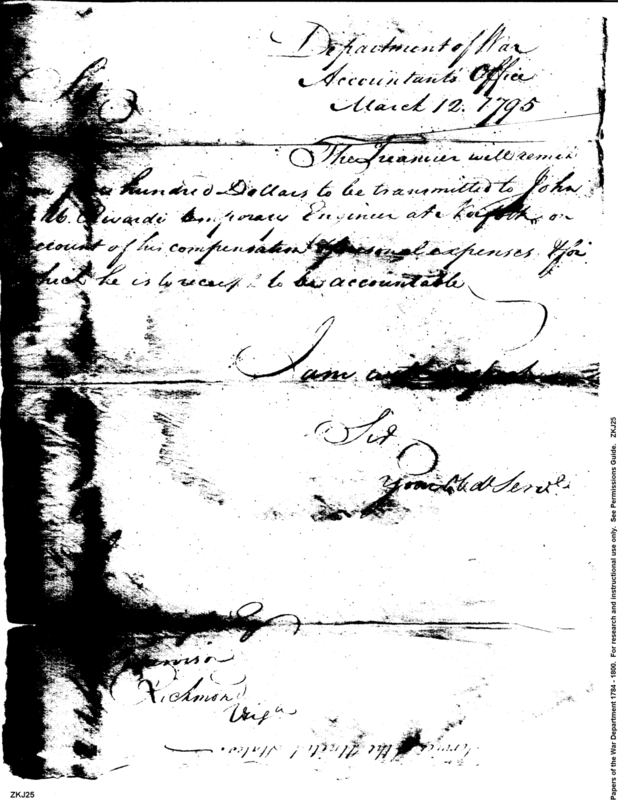 Department of War
Accountants Office
March 12. 1795
Sir
The Treasurer will remit
hundred Dollars to be transmitted to John
Rivardi temporary Engineer at Norfolk, on
count of his compensation & personal expenses & for
which he is to receipt to be accountable
I am with respect
Sir
Your Obdt Servt
Esq
Richmond
Virga
of the United States.
ZKJ25
Papers of the War Department 1784 - 1800. For research and instructional use only. See Permissions Guide. ZKJ25